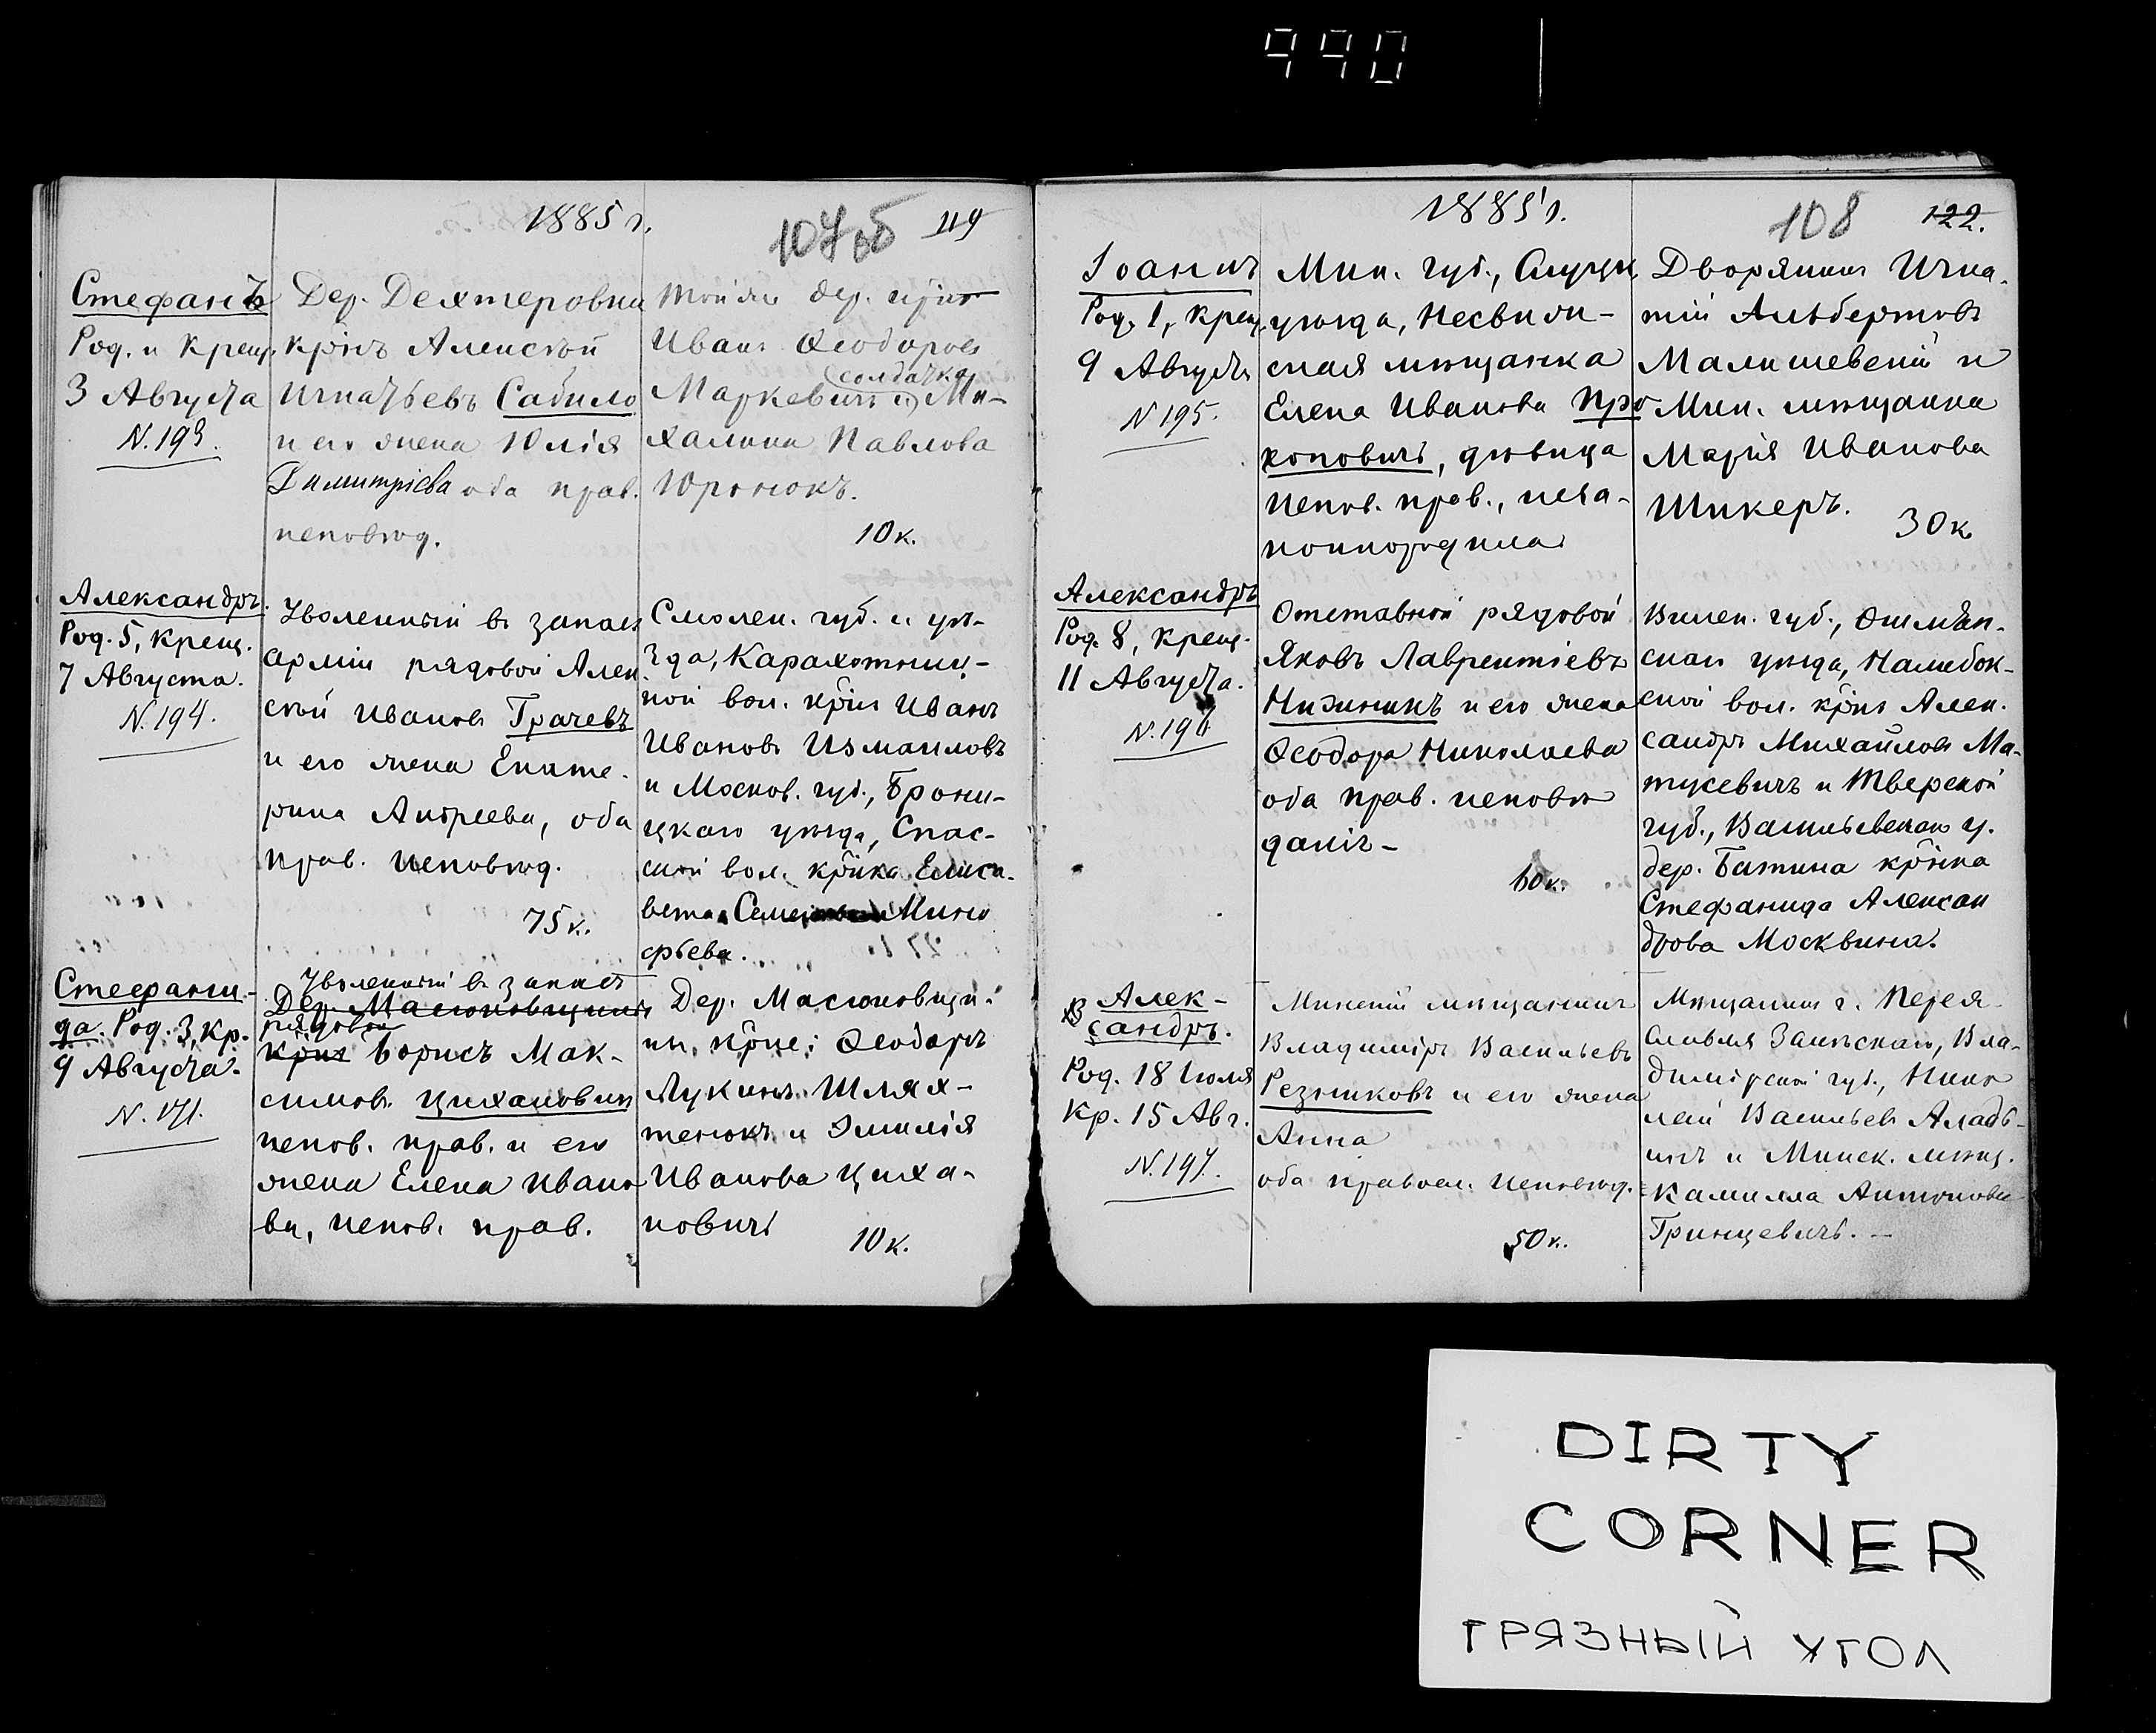 990
1885 г.
107 об
119
Стефанъ
Род. и Крещ.
3 Августа
N. 193.
Дер. Дехтеровки
кр̃нъ Алексѣй
Игнатьевъ Сабило
и его жена Юлія
Димитріева оба прав.
исповѣд.
той же дер. кр̃нъ
Иванъ Ѳеодоровъ
солдатка
Маркевичъ и Ми-
халина Павлова
Юронокъ.
10 к.
Александръ.
Род. 5, крещ.
7 Августа.
N. 194.
Уволенный въ запасъ
арміи рядовой Алек
сѣй Ивановъ Грачевъ
и его жена Екате-
рина Андреева, оба
прав. исповѣд.
75 к.
Смолен. губ. и уѣ-
зда, Карахотниц-
кой вол. кр̃нъ Иванъ
Ивановъ Измаиловъ
и Москов. губ., Брони-
цкаго уѣзда, Спас-
ской вол. кр̃нка Елиса-
вета Мино
фьева.
Стефани-
да. Род. 3, Кр.
9 Августа.
N. 171.
Уволенный въ запасъ
Дер. Масюковщины
рядовой
кр̃нъ Борисъ Мак-
симовъ Цихановичъ
испов. прав. и его
жена Елена Ивано
ва, испов. прав.
Дер. Масюковщи-
ны, кр̃не: Ѳеодоръ
Лукинъ Шлях-
тенокъ и Эмилія
Иванова Циха-
новичъ
10 к.
1885 г.
108
122.
Іоаннъ
Род. 1, Крещ.
9 Августа
N 195.
Мин. губ., Слуцк.
уѣзда, Несвиж-
ская мѣщанка
Елена Иванова Про
коповичъ, дѣвица
испов. прав., неза-
коннорожд.
Дворянинъ Игна-
тій Альбертовъ
Малишевскій и
Мин. мѣщанка
Марія Иванова
Шикеръ.
30 к.
Александръ
Род. 8, крещ.
11 Августа.
N. 196
Отставной рядовой
Яковъ Лаврентіевъ
Нижникъ и его жена
Ѳеодора Николаева
оба прав. исповѣ
даніе-
60 к.
Вилен. губ., Ошмян-
скаго уѣзда, Налибок-
ской вол. кр̃нъ Алек-
сандръ Михайловъ Ма-
тусевичъ и Тверской
губ., Васильевскаго у.
дер. Батина кр̃нка
Стефанида Алексан
дрова Москвина.
Алек-
сандръ.
Род. 18 Іюля
Кр. 15 Авг.
N. 197.
Минскій мѣщанинъ
Владиміръ Васильевъ
Резниковъ и его жена
Анна
оба правосл. исповѣд.
50 к.
Мѣщанинъ г. Перея-
славля Залѣскаго, Вла-
димірской губ., Нико
лай Васильевъ Аладь-
инъ и Минск. мѣщ.
Камилла Антонова
Гринцевичъ. -
DIRTY
CORNER
ГРЯЗНЫЙ УГОЛ